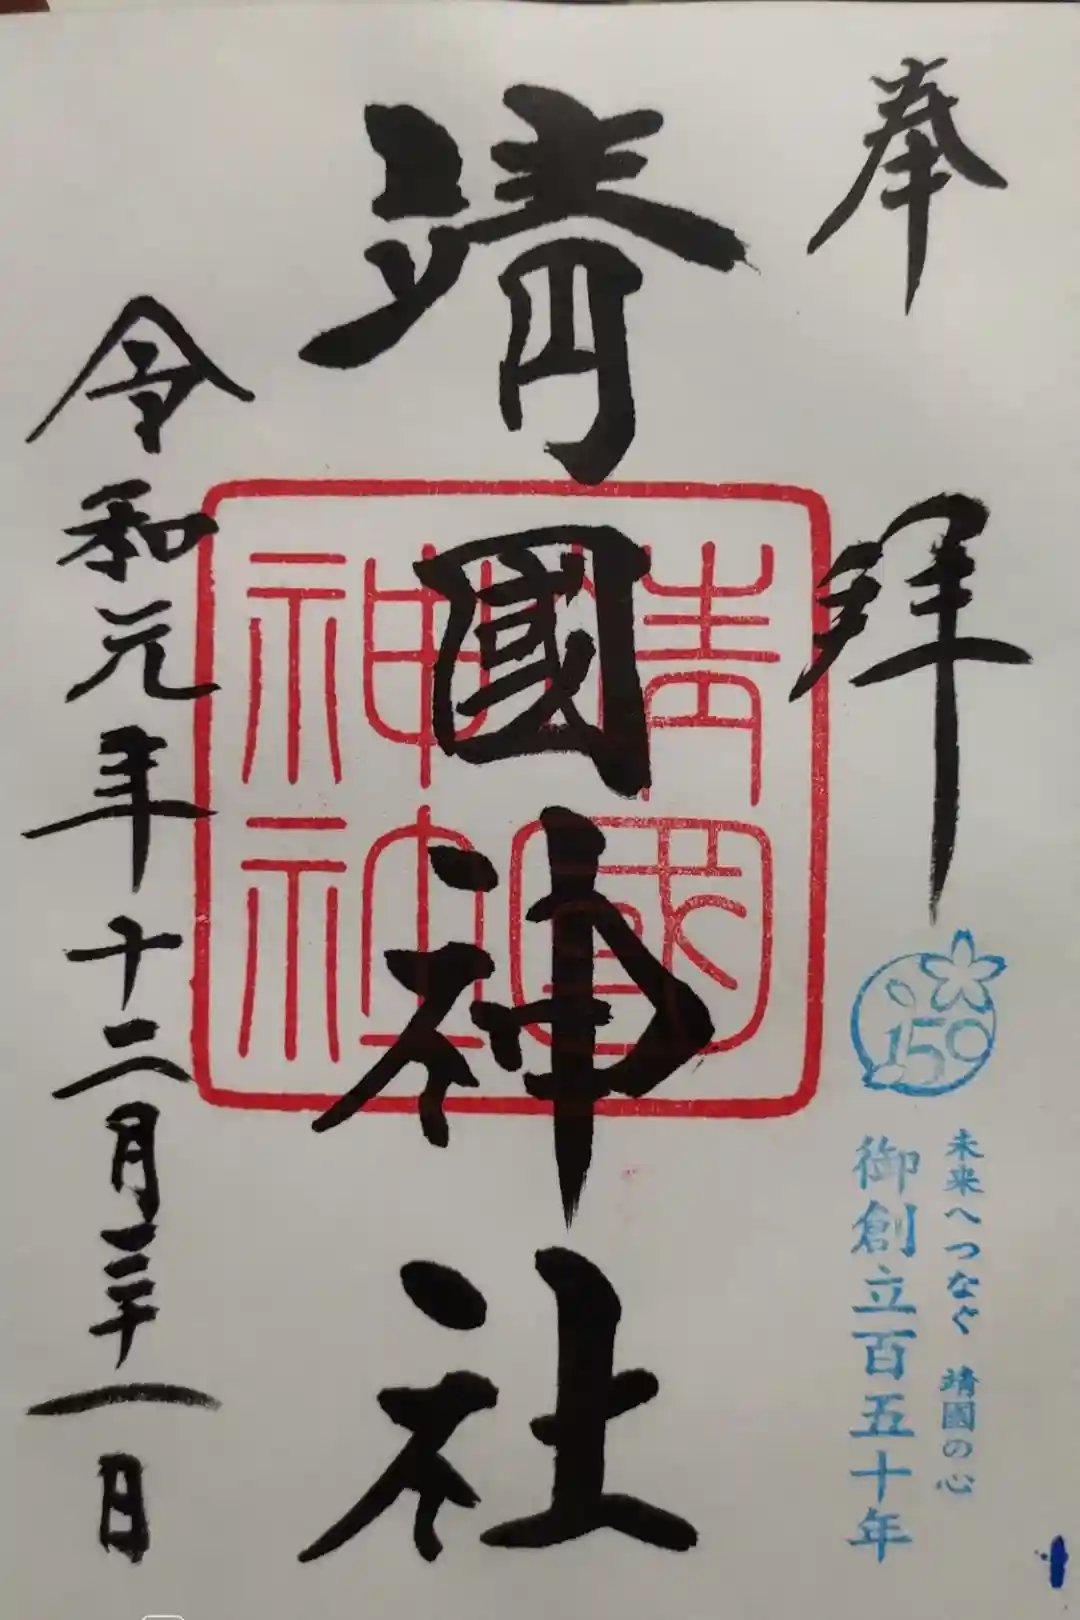 奉拜
150
未来へつなぐ 靖國の心
御創立百五十年
靖國神社
靖國神社
令和元年十二月三十一日